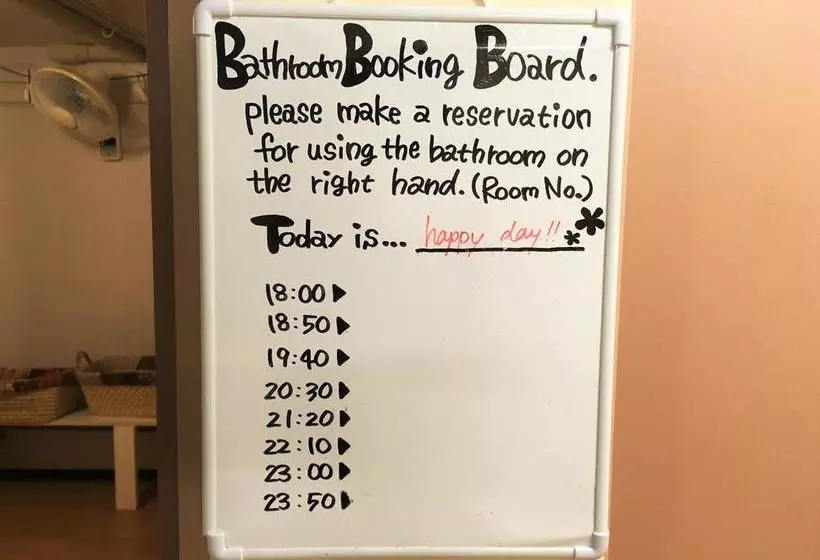 Bathroom Booking Board.
please make a reservation
for using the bathroom on
the right hand. (Room No.)
Today is... happy day!! **
18:00 ▶
18:50 ▶
19:40 ▶
20:30 ▶
21:20 ▶
22:10 ▶
23:00 ▶
23:50 ▶